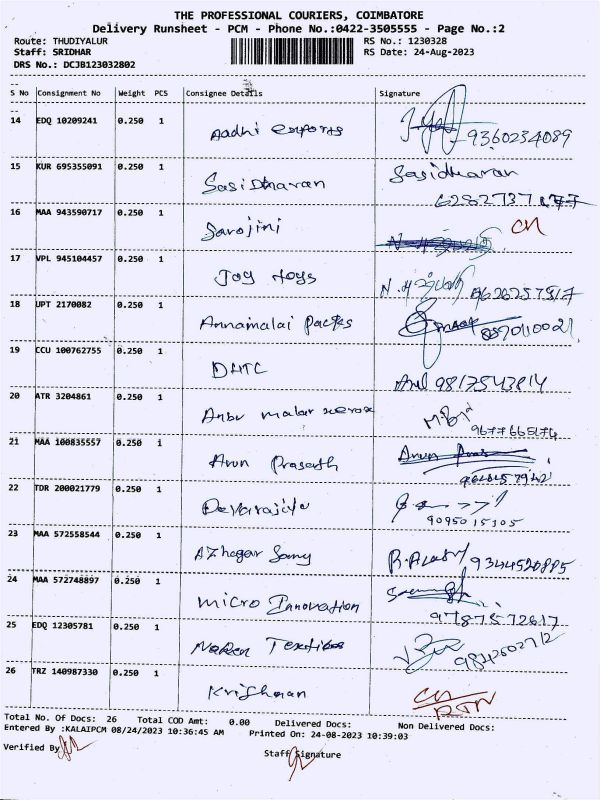 THE PROFESSIONAL COURIERS, COIMBATORE
Delivery Runsheet - PCM - Phone No.:0422-3505555 - Page No.:2
Route: THUDIYALUR RS No.: 1230328
Staff: SRIDHAR RS Date: 24-Aug-2023
DRS No.: DCJB123032802
S No Consignment No Weight PCS Consignee Details Signature
14 EDQ 10209241 0.250 1 Aadhi exports 9360234089
15 KUR 695355091 0.250 1 Sasidharan Sasidharan
16 MAA 943590717 0.250 1 Sarojini CN
17 VPL 945104457 0.250 1 Joy toys
18 UPT 2170082 0.250 1 Annamalai Packs
19 CCU 100762755 0.250 1 DHTC 9817543814
20 ATR 3204861 0.250 1 Anbu malar xerox
21 MAA 100835557 0.250 1 Arun Prasath
22 TDR 200021779 0.250 1 Devarajulu
9095015105
23 MAA 572558544 0.250 1 Azhagar Samy 9344520885
24 MAA 572748897 0.250 1 Micro Innovation
9787572617
25 EDQ 12305781 0.250 1 Textiles 9842602712
26 TRZ 140987330 0.250 1 Krishnan CN
RTN
Total No. Of Docs: 26 Total COD Amt: 0.00 Delivered Docs: Non Delivered Docs:
Entered By :KALAIPCM 08/24/2023 10:36:45 AM Printed On: 24-08-2023 10:39:03
Verified By Staff Signature